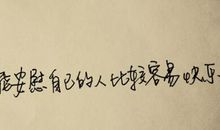 安慰自己的人比较容易快乐